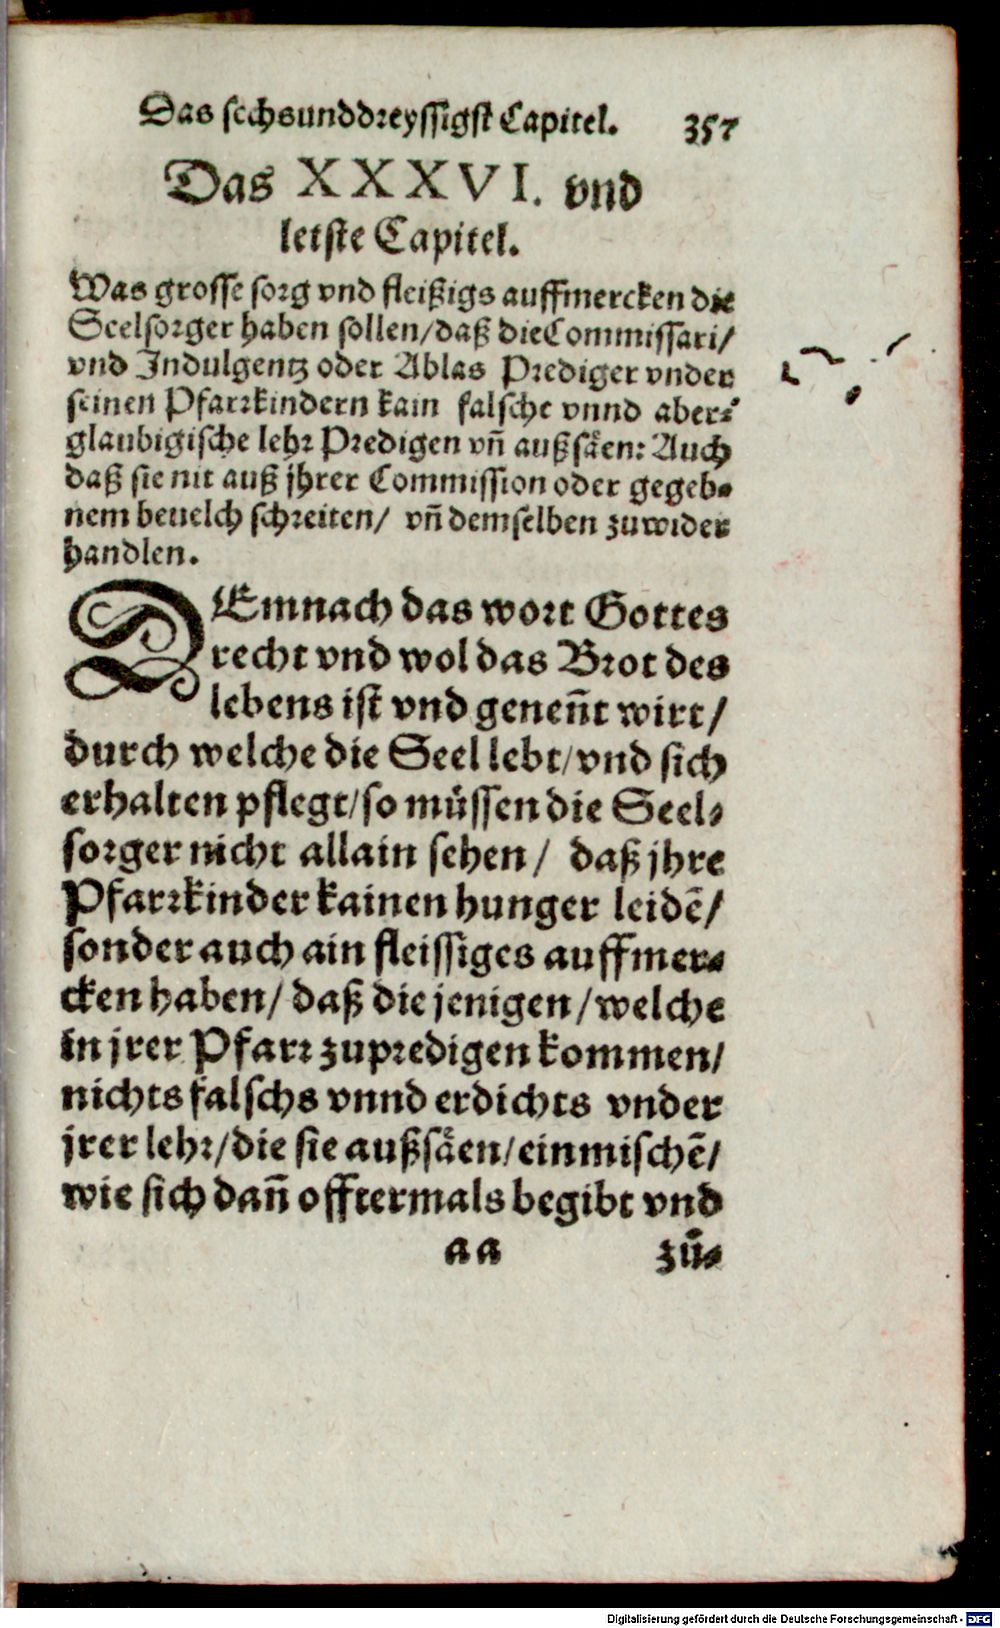 Das sechsunddreyssigst Capitel. 357
Das XXXVI. vnd
letste Capitel.
Was grosse sorg vnd fleißigs auffmercken die
Seelsorger haben sollen/daß die Commissari/
vnd Indulgentz oder Ablas Prediger vnder
seinen Pfarrkindern kain falsche vnnd aber⸗
glaubigische lehr Predigen vñ außsäen: Auch
daß sie nit auß jhrer Commission oder gegeb⸗
nem beuelch schreiten/ vñ demselben zuwider
handlen.
DEmnach das wort Gottes
recht vnd wol das Brot des
lebens ist vnd geneñt wirt/
durch welche die Seel lebt/vnd sich
erhalten pflegt/so müssen die Seel⸗
sorger nicht allain sehen/ daß jhre
Pfarrkinder kainen hunger leidẽ/
sonder auch ain fleissiges auffmer⸗
cken haben/ daß die jenigen/welche
in jrer Pfarr zupredigen kommen/
nichts falschs vnnd erdichts vnder
jrer lehr/die sie außsäen/einmischẽ/
wie sich dañ offtermals begibt vnd
aa zů⸗
Digitalisierung gefördert durch die Deutsche Forschungsgemeinschaft - DFG